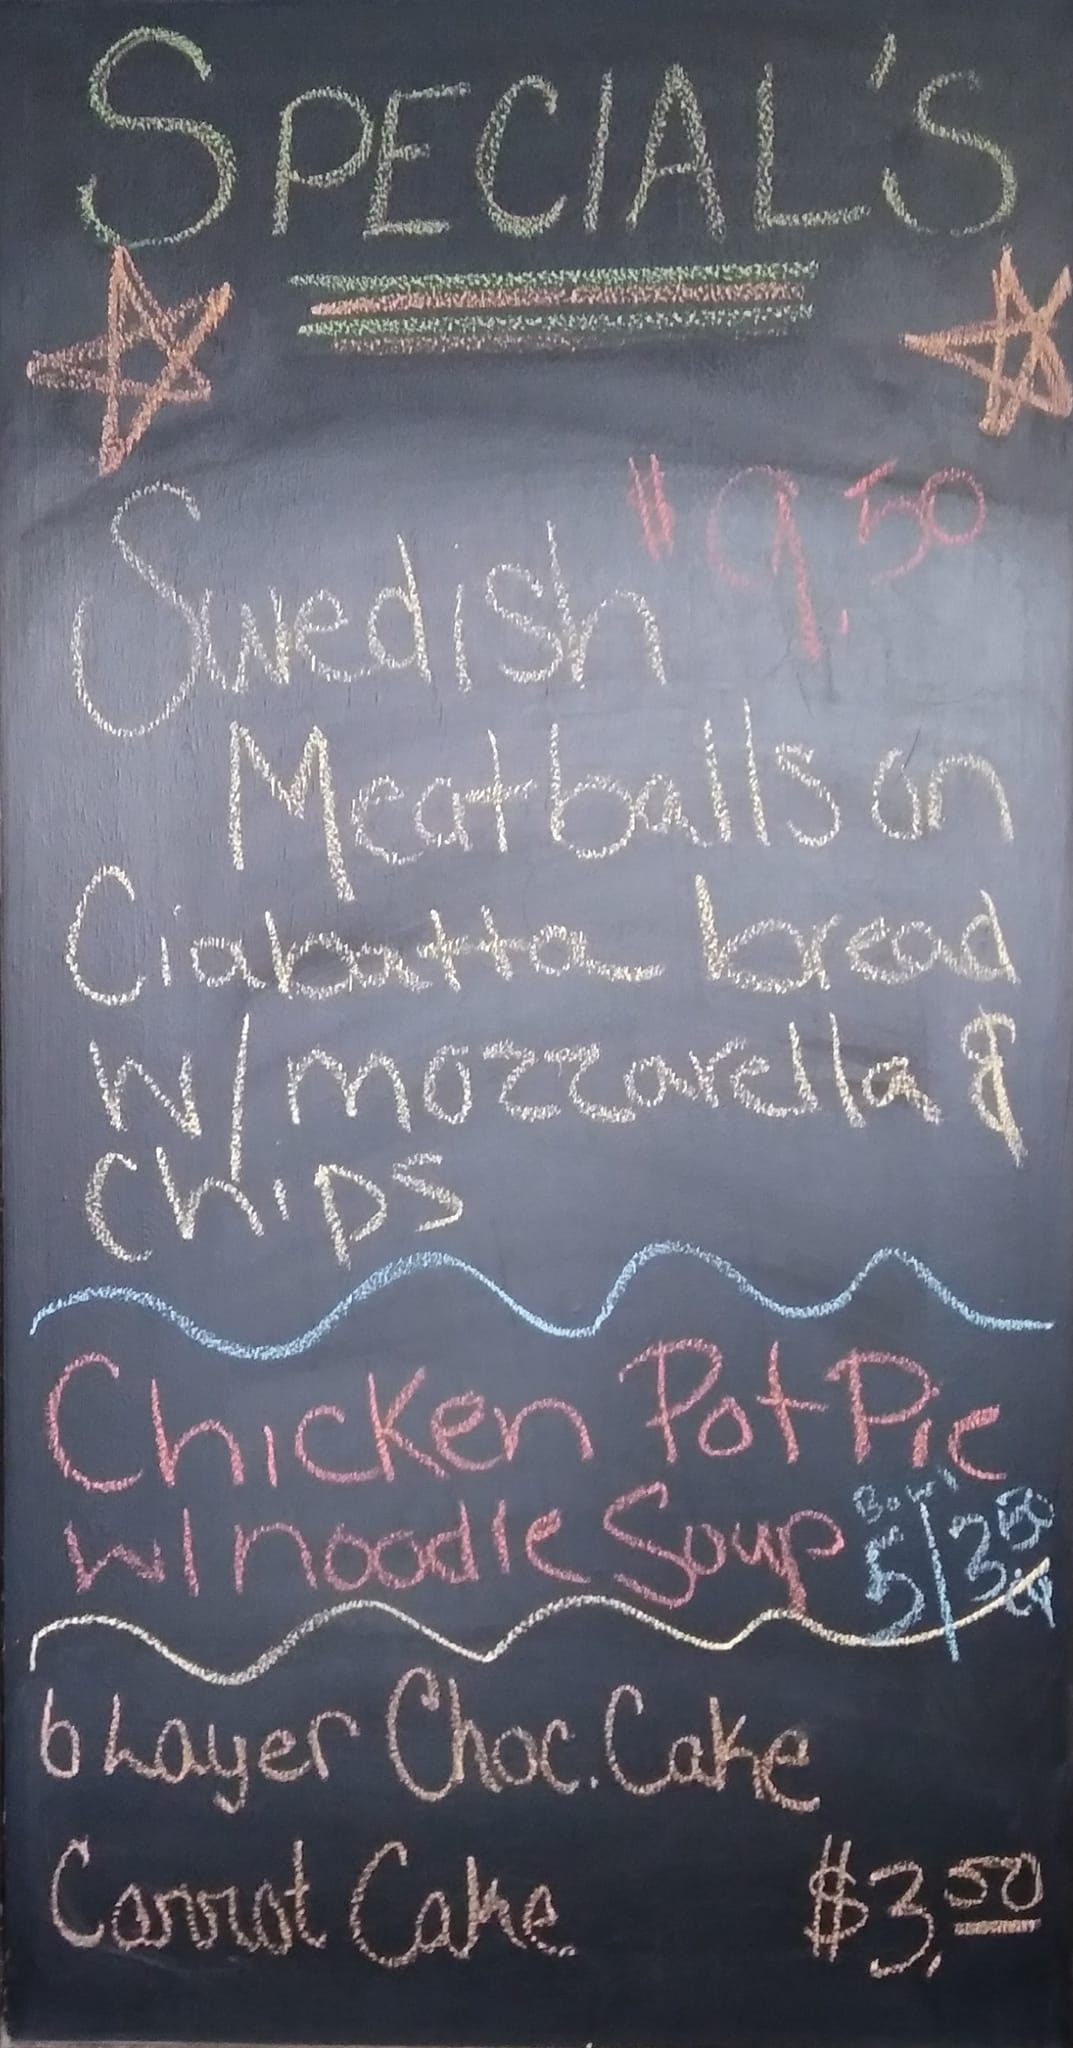 SPECIAL'S
$9.50
Swedish
Meatballs on
Ciabatta bread
w/mozzarella &
Chips
Chicken Pot Pie
w/noodle Soup Bowl 5/3.50
6 Layer Choc. Cake
Carrot Cake $3.50